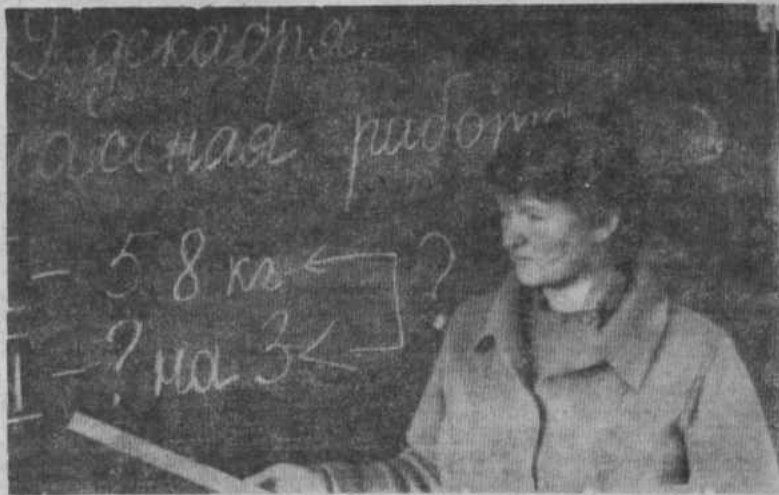 9 декабря.
лассная работа
I – 58 кг ?
II – ? на 3 <